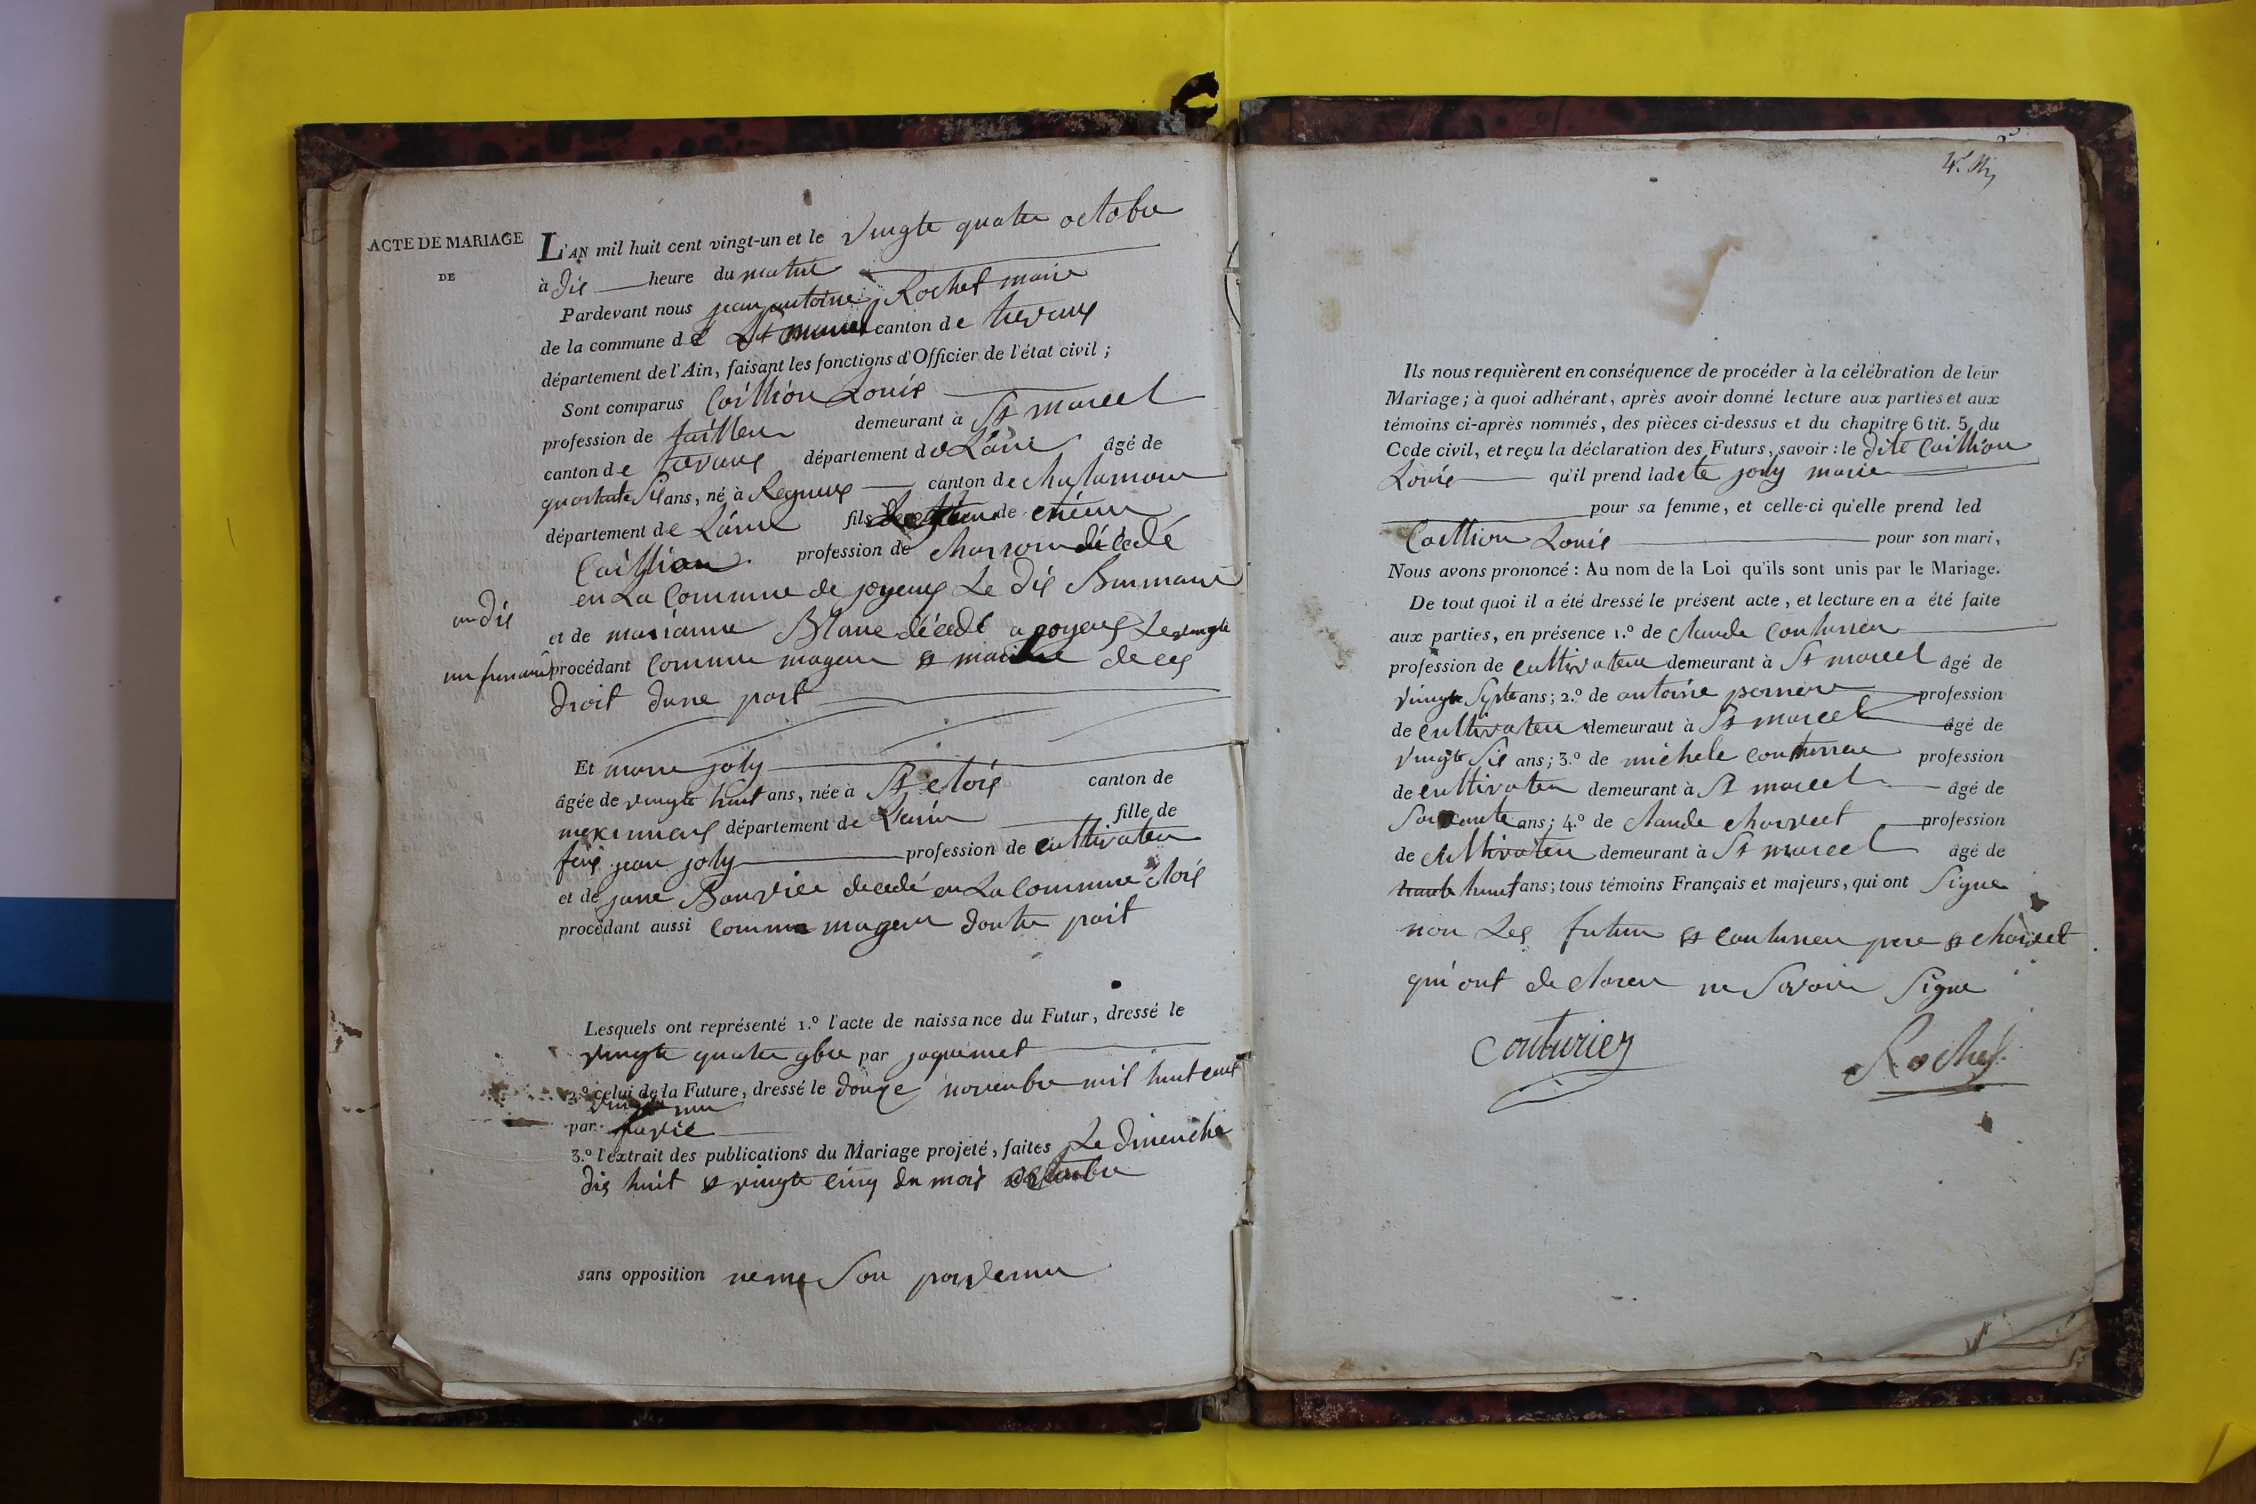 ACTE DE MARIAGE
DE
L'AN mil huit cent vingt-un et le vingte quatre octobre
à dis heure du matin
Pardevant nous jean antoine Rochet maire
de la commune de St marcel canton de trevous
département de l'Ain, faisant les fonctions d'Officier de l'état civil ;
Sont comparus Caillion Louis
profession de tailleur demeurant à St marcel
canton de trevous département de Láin âgé de
quarante sis ans, né à canton de chalamon
département de Láin fils de etienn
Caillion profession de charron décedé
en La Commune de joyeus Le dis Brumaire
an dis
et de marianne Blanc décedé a joyeus Le vingte
un frimaire procédant comme mageur et maitre de ces
droit dune part
Et marie joly
âgée de vingte huit ans, née à St elois canton de
meximieus département de Láin fille de
feus jean joly profession de cultivateur
et de jane Bouvier decedé en La Commune St elois
procédant aussi comme mageur dautre part
Lesquels ont représenté 1.º l'acte de naissance du Futur, dressé le
vingte quatre 9bre par jaquemet
2.º celui de la Future, dressé le douze novembre mil huit cent
vingt un
par
3.º l'extrait des publications du Mariage projeté, faites Le dimenche
dis huit et vingte cinq du mois
sans opposition parvenu
4.e
Ils nous requièrent en conséquence de procéder à la célébration de leur
Mariage ; à quoi adhérant, après avoir donné lecture aux parties et aux
témoins ci-après nommés, des pièces ci-dessus et du chapitre 6 tit. 5 du
Code civil, et reçu la déclaration des Futurs, savoir : le dite Caillion
Louis qu'il prend ladete joly marie
pour sa femme, et celle-ci qu'elle prend led
Caillion Louis pour son mari,
Nous avons prononcé : Au nom de la Loi qu'ils sont unis par le Mariage.
De tout quoi il a été dressé le présent acte, et lecture en a été faite
aux parties, en présence 1.º de claude couturier
profession de cultivateur demeurant à St marcel âgé de
vingte septe ans ; 2.º de antoine perriere profession
de cultivateur demeuraut à St marcel âgé de
vingte sis ans ; 3.º de michele couturier profession
de cultivateur demeurant à St marcel âgé de
Soixante ans ; 4.º de claude charvet profession
de cultivateur demeurant à St marcel âgé de
trante huit ans ; tous témoins Français et majeurs, qui ont Signe
non Les futur et couturier pere et charvet
qui ont declarer ne Savoir Signe
couturier
Rochet